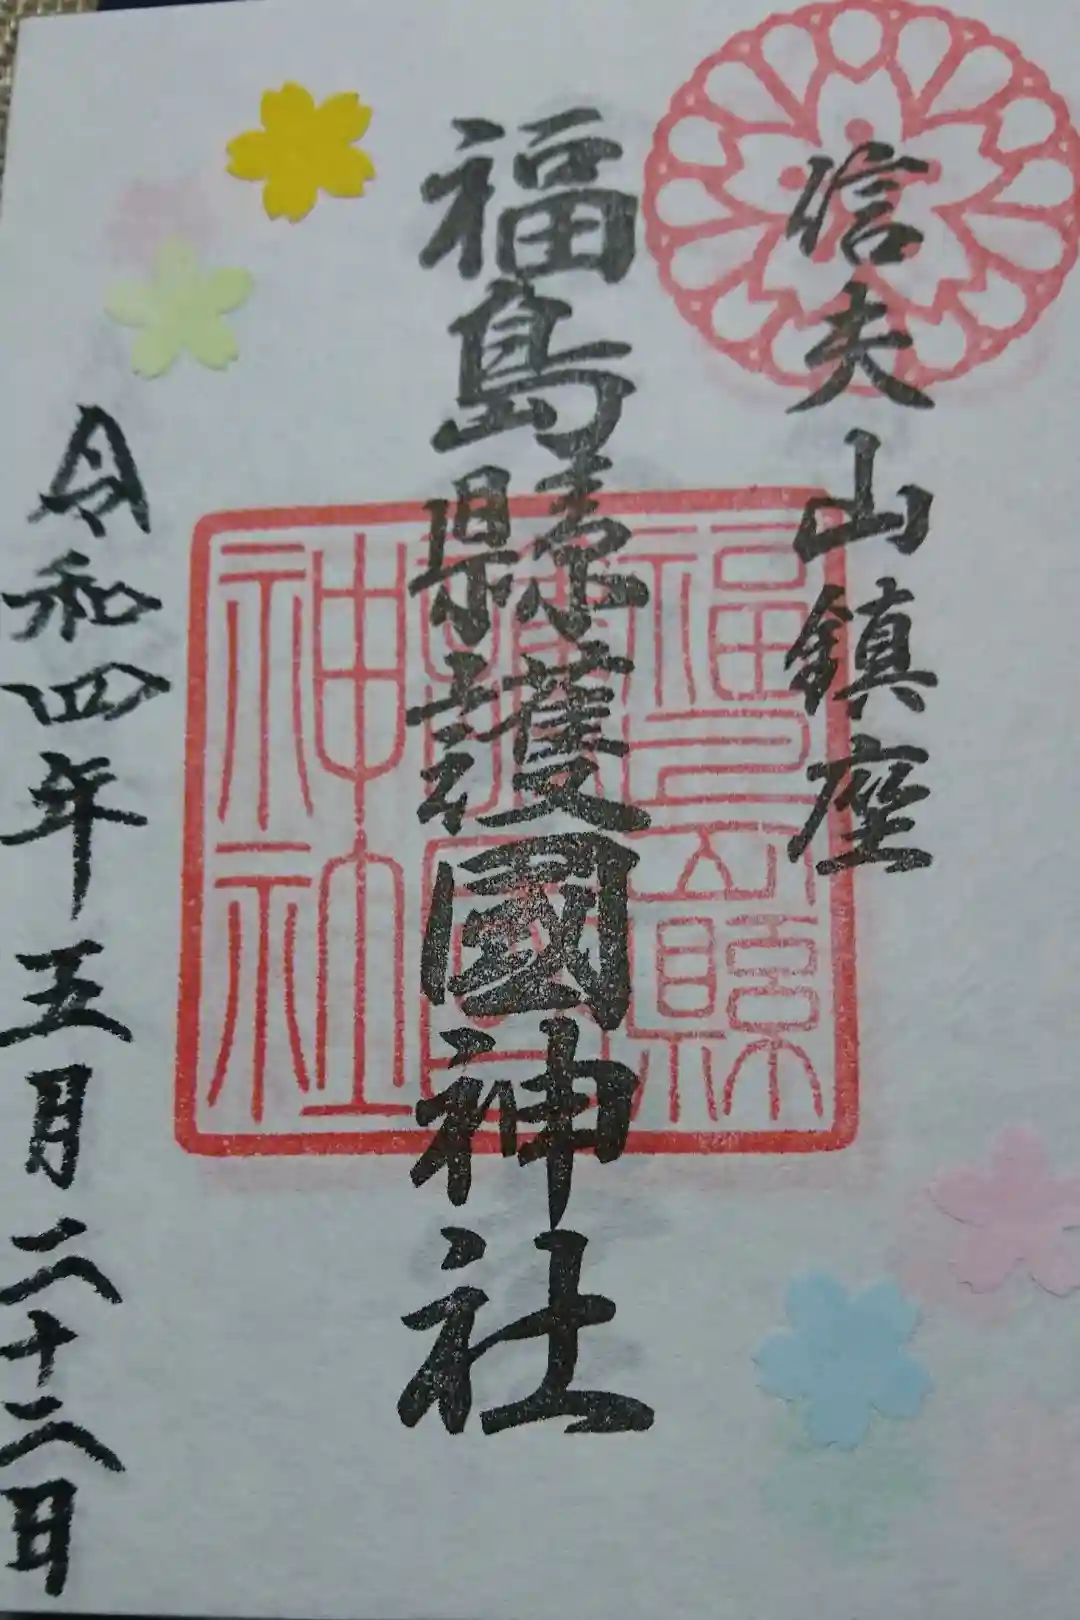 信夫山鎮座
福島縣護國神社
福島縣護国神社
令和四年五月二十二日